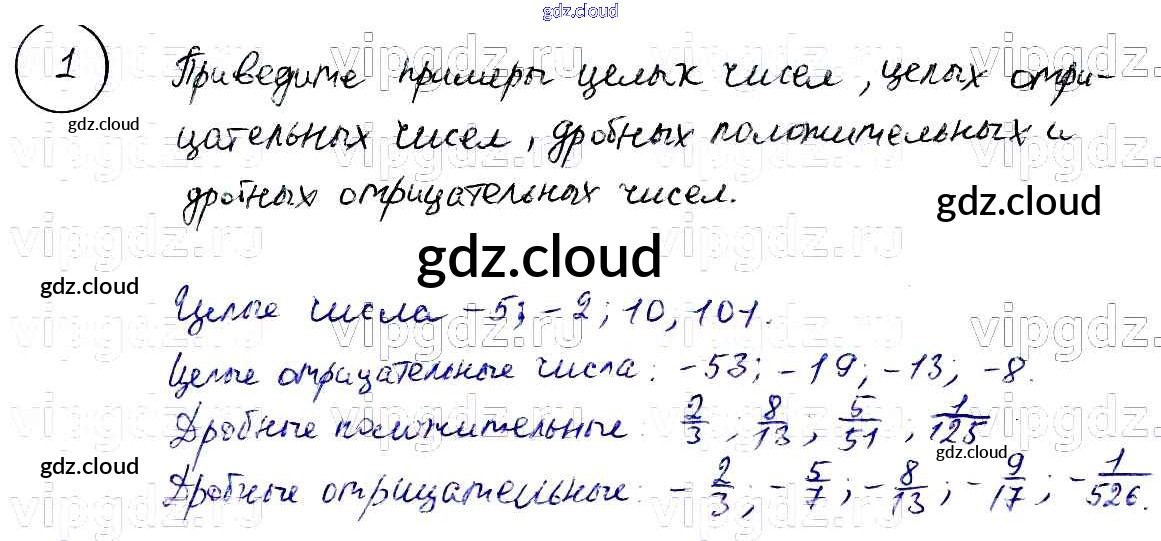 gdz.cloud
1
Приведите примеры целых чисел, целых отри-
цательных чисел, дробных положительных и
дробных отрицательных чисел.
gdz.cloud
gdz.cloud
gdz.cloud
gdz.cloud
Целые числа -5; -2; 10, 101.
Целые отрицательные числа: -53; -19; -13; -8.
Дробные положительные: 2/3, 8/13, 5/51, 1/125
gdz.cloud
gdz.cloud
Дробные отрицательные: -2/3; -5/7; -8/13; -9/17; -1/526.
vipgdz.ru